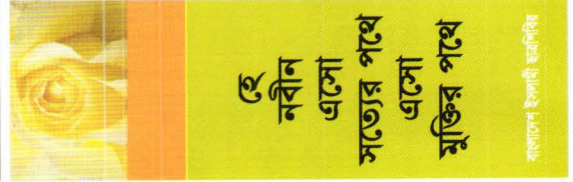 হে
নবীন
এসো
সত্যের পথে
এসো
মুক্তির পথে
বাংলাদেশ ইসলামী ছাত্রশিবির